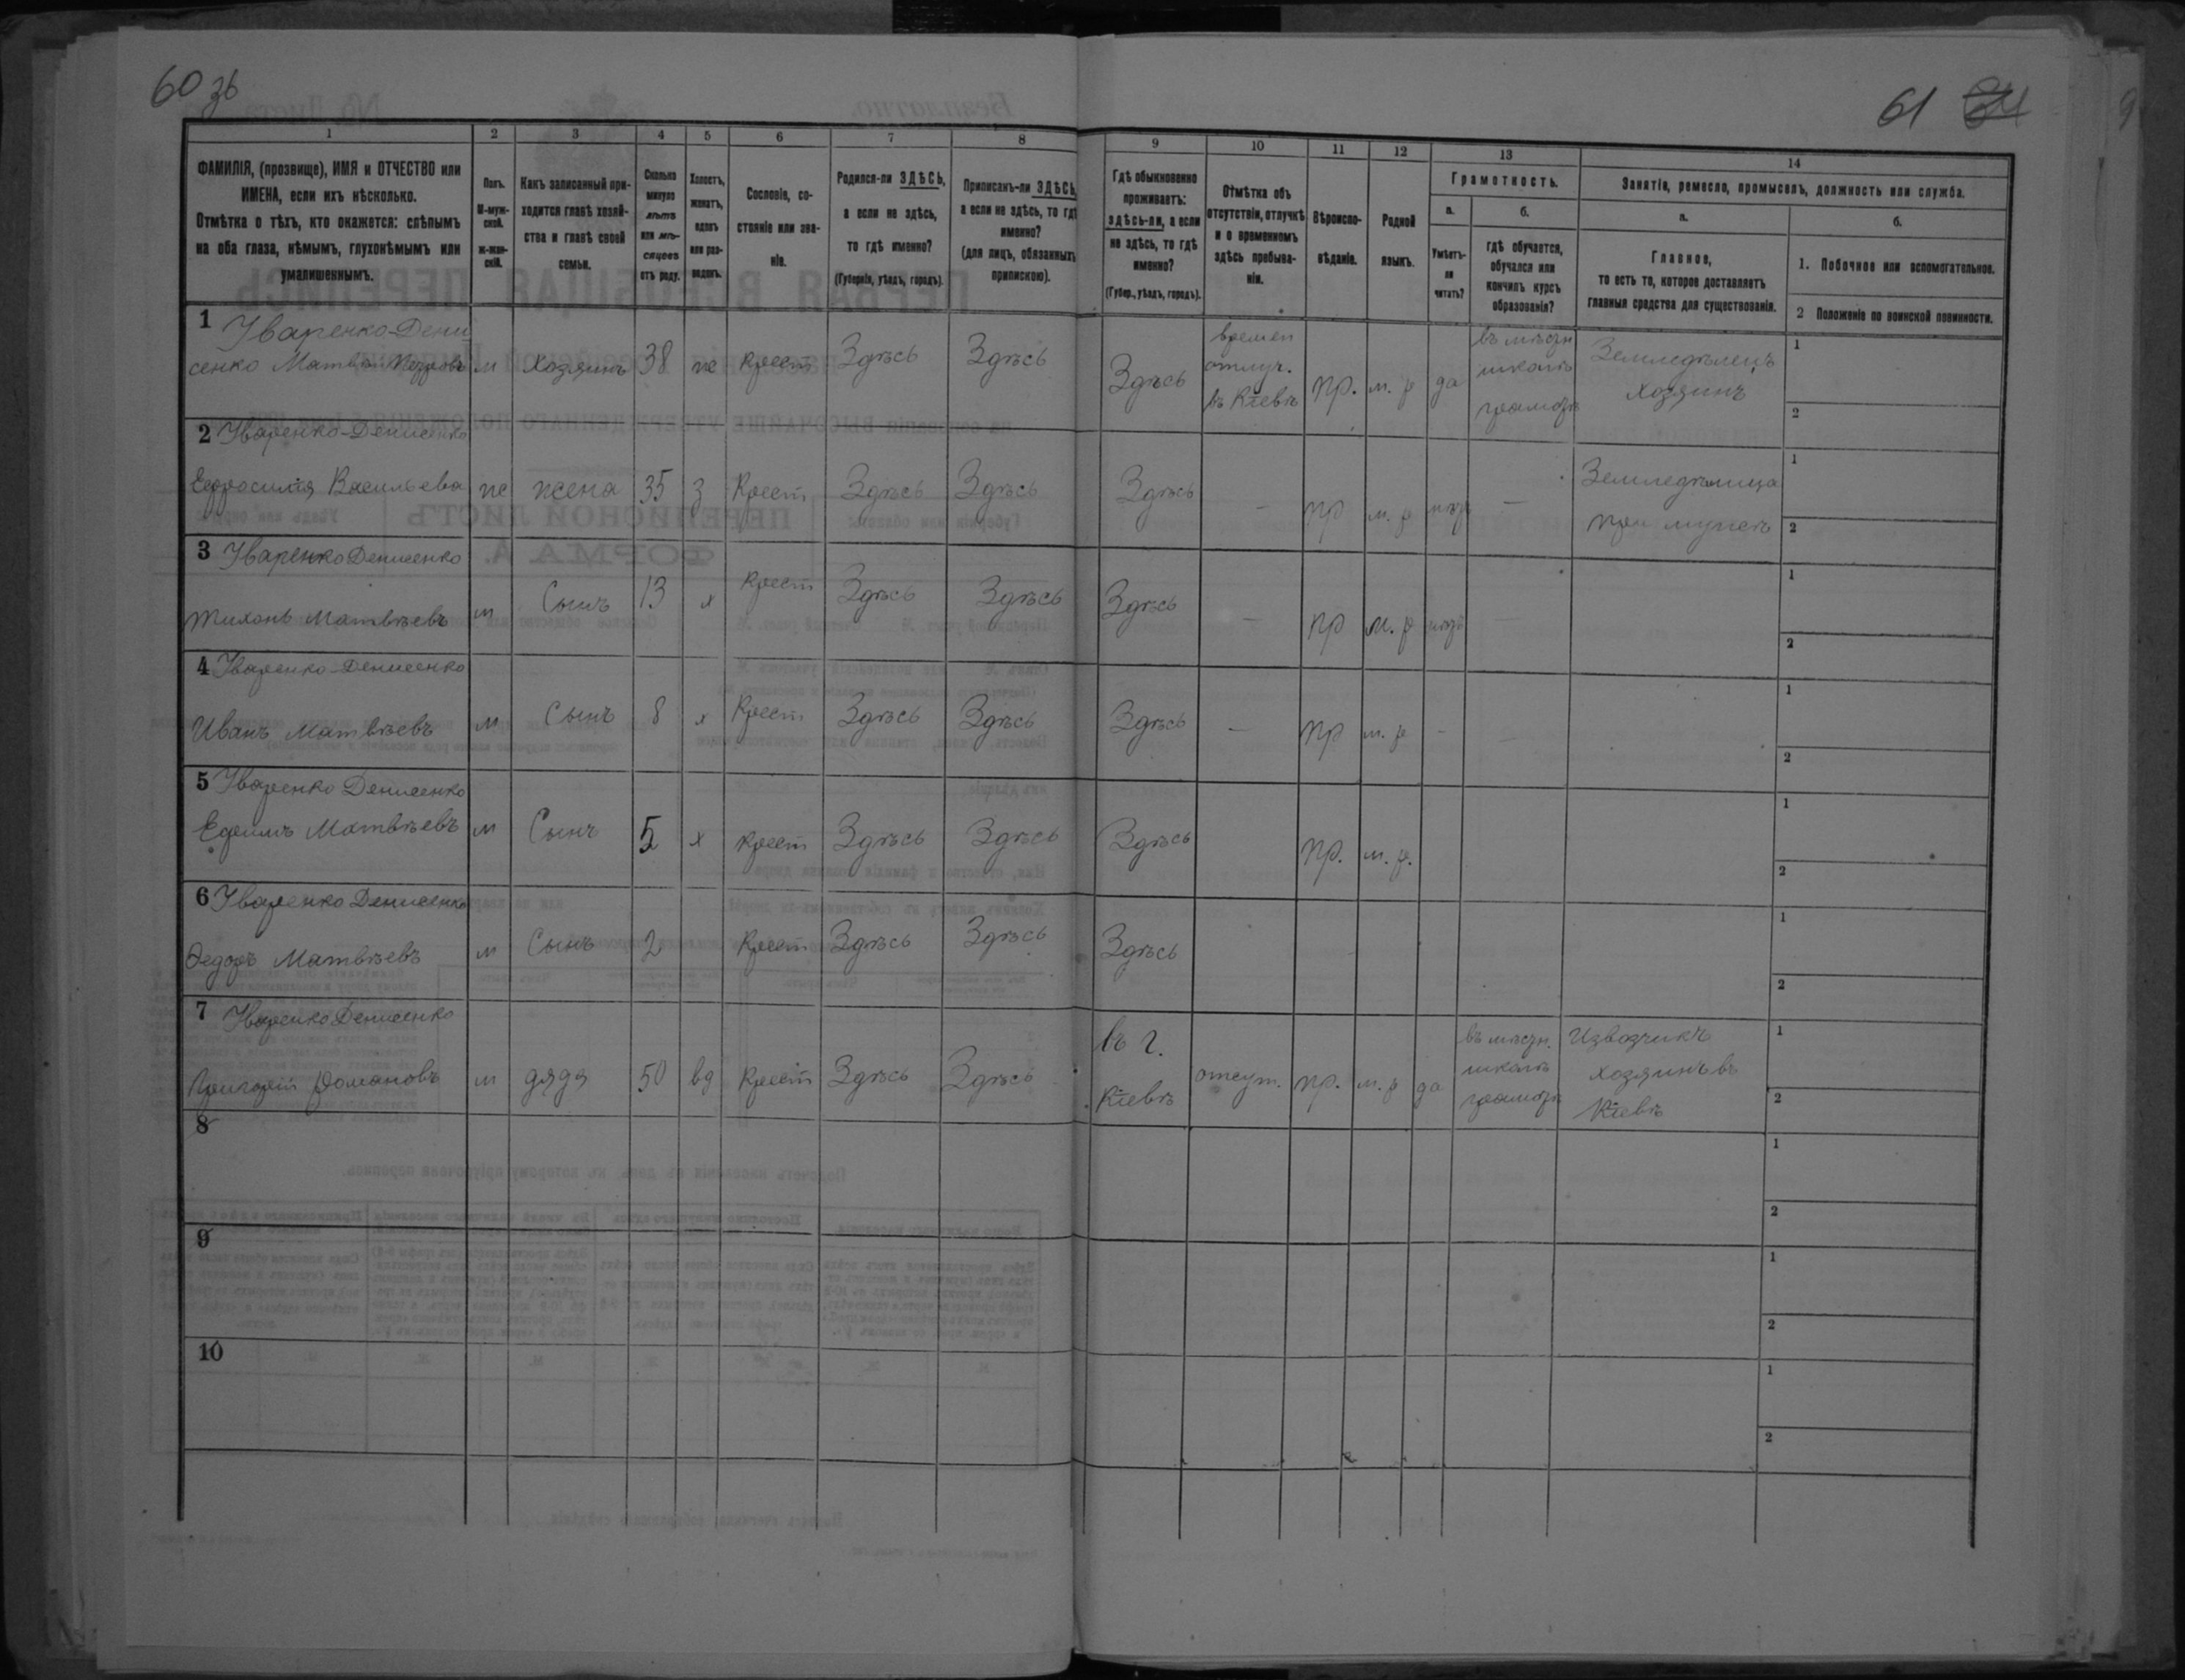 60 зв
61 64
1 2 3 4 5 6 7 8 9 10 11 12 13 14
ФАМИЛІЯ, (прозвище), ИМЯ и ОТЧЕСТВО или
ИМЕНА, если ихъ нѣсколько.
Отмѣтка о тѣхъ, кто окажется: слѣпымъ
на оба глаза, нѣмымъ, глухонѣмымъ или
умалишеннымъ.
Полъ.
М-муж-
ской.
ж-жен-
скій.
Какъ записанный при-
ходится главѣ хозяй-
ства и главѣ своей
семьи.
Сколько
минуло
лѣтъ
или мѣ-
сяцевъ
отъ роду.
Холостъ,
женатъ,
вдовъ
или раз-
веденъ.
Сословіе, со-
стояніе или зва-
ніе.
Родился-ли ЗДѢСЬ,
а если не здѣсь,
то гдѣ именно?
(Губернія, уѣздъ, городъ).
Приписанъ-ли ЗДѢСЬ,
а если не здѣсь, то гдѣ
именно?
(для лицъ, обязанныхъ
припискою).
Гдѣ обыкновенно
проживаетъ:
здѣсь-ли, а если
не здѣсь, то гдѣ
именно?
(Губер., уѣздъ, городъ).
Отмѣтка объ
отсутствіи, отлучкѣ
и о временномъ
здѣсь пребыва-
ніи.
Вѣроиспо-
вѣданіе.
Родной
языкъ.
Грамотность.
а.
Умѣетъ-
ли
читать?
б.
гдѣ обучается,
обучался или
кончилъ курсъ
образованія?
Занятіе, ремесло, промыселъ, должность или служба.
а.
Главное,
то есть то, которое доставляетъ
главныя средства для существованія.
б.
1. Побочное или вспомогательное.
2 Положеніе по воинской повинности.
1 Уваренко-Дени
сенко Матвѣй м хозяинъ 38 ж крест Здѣсь Здѣсь Здѣсь
времен
отлуч.
въ Кіевѣ
пр. м. р да
въ мѣстн
школѣ
грамотѣ
Земледѣлецъ
хозяинъ
1
2
2 Уваренко-Денисенко
Ефросинія Васильева ж жена 35 з Крест Здѣсь Здѣсь Здѣсь — пр м. р нѣтъ —
Земледѣлица
при мужѣ
1
2
3 Уваренко Денисенко
Тихонъ Матвѣевъ м Сынъ 13 х Крест Здѣсь Здѣсь Здѣсь — пр м. р нѣтъ —
1
2
4 Уваренко-Денисенко
Иванъ Матвѣевъ м Сынъ 8 х Крест Здѣсь Здѣсь Здѣсь — пр м. р - —
1
2
5 Уваренко Денисенко
Ефимъ Матвѣевъ м Сынъ 5 х крест Здѣсь Здѣсь Здѣсь пр. м. р.
1
2
6 Уваренко Денисенко
Федоръ Матвѣевъ м Сынъ 2 Крест Здѣсь Здѣсь Здѣсь
1
2
7 Уваренко Денисенко
Григорій Романовъ м дядя 50 вд Крест Здѣсь Здѣсь
въ г.
Кіевѣ
отсут. пр. м. р да
въ мѣстн.
школѣ
грамотѣ
Извозчикъ
хозяинъ въ
Кіевѣ
1
2
8
1
2
9
1
2
10
1
2